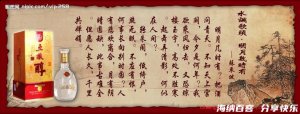 水调歌头·明月几时有
明月几时有?把酒
问青天。不知天上宫
阙,今夕是何年。我
欲乘风归去,又恐琼
楼玉宇,高处不胜寒。
起舞弄清影,何似
在人间。
转朱阁,低绮户,
照无眠。不应有恨,
何事长向别时圆?人
有悲欢离合,月有阴
晴圆缺,此事古难全。
但愿人长久,千里
共婵娟。
五粮醇
分享快乐